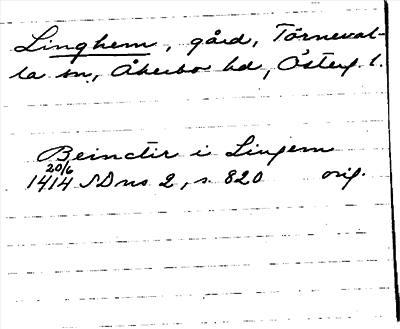 Linghem, gård, Törneval-
la sn, Åkerbo hd, Österg. l.
Beinctir i Lingem
20/6
1414 SD ns 2, s. 820 orig.